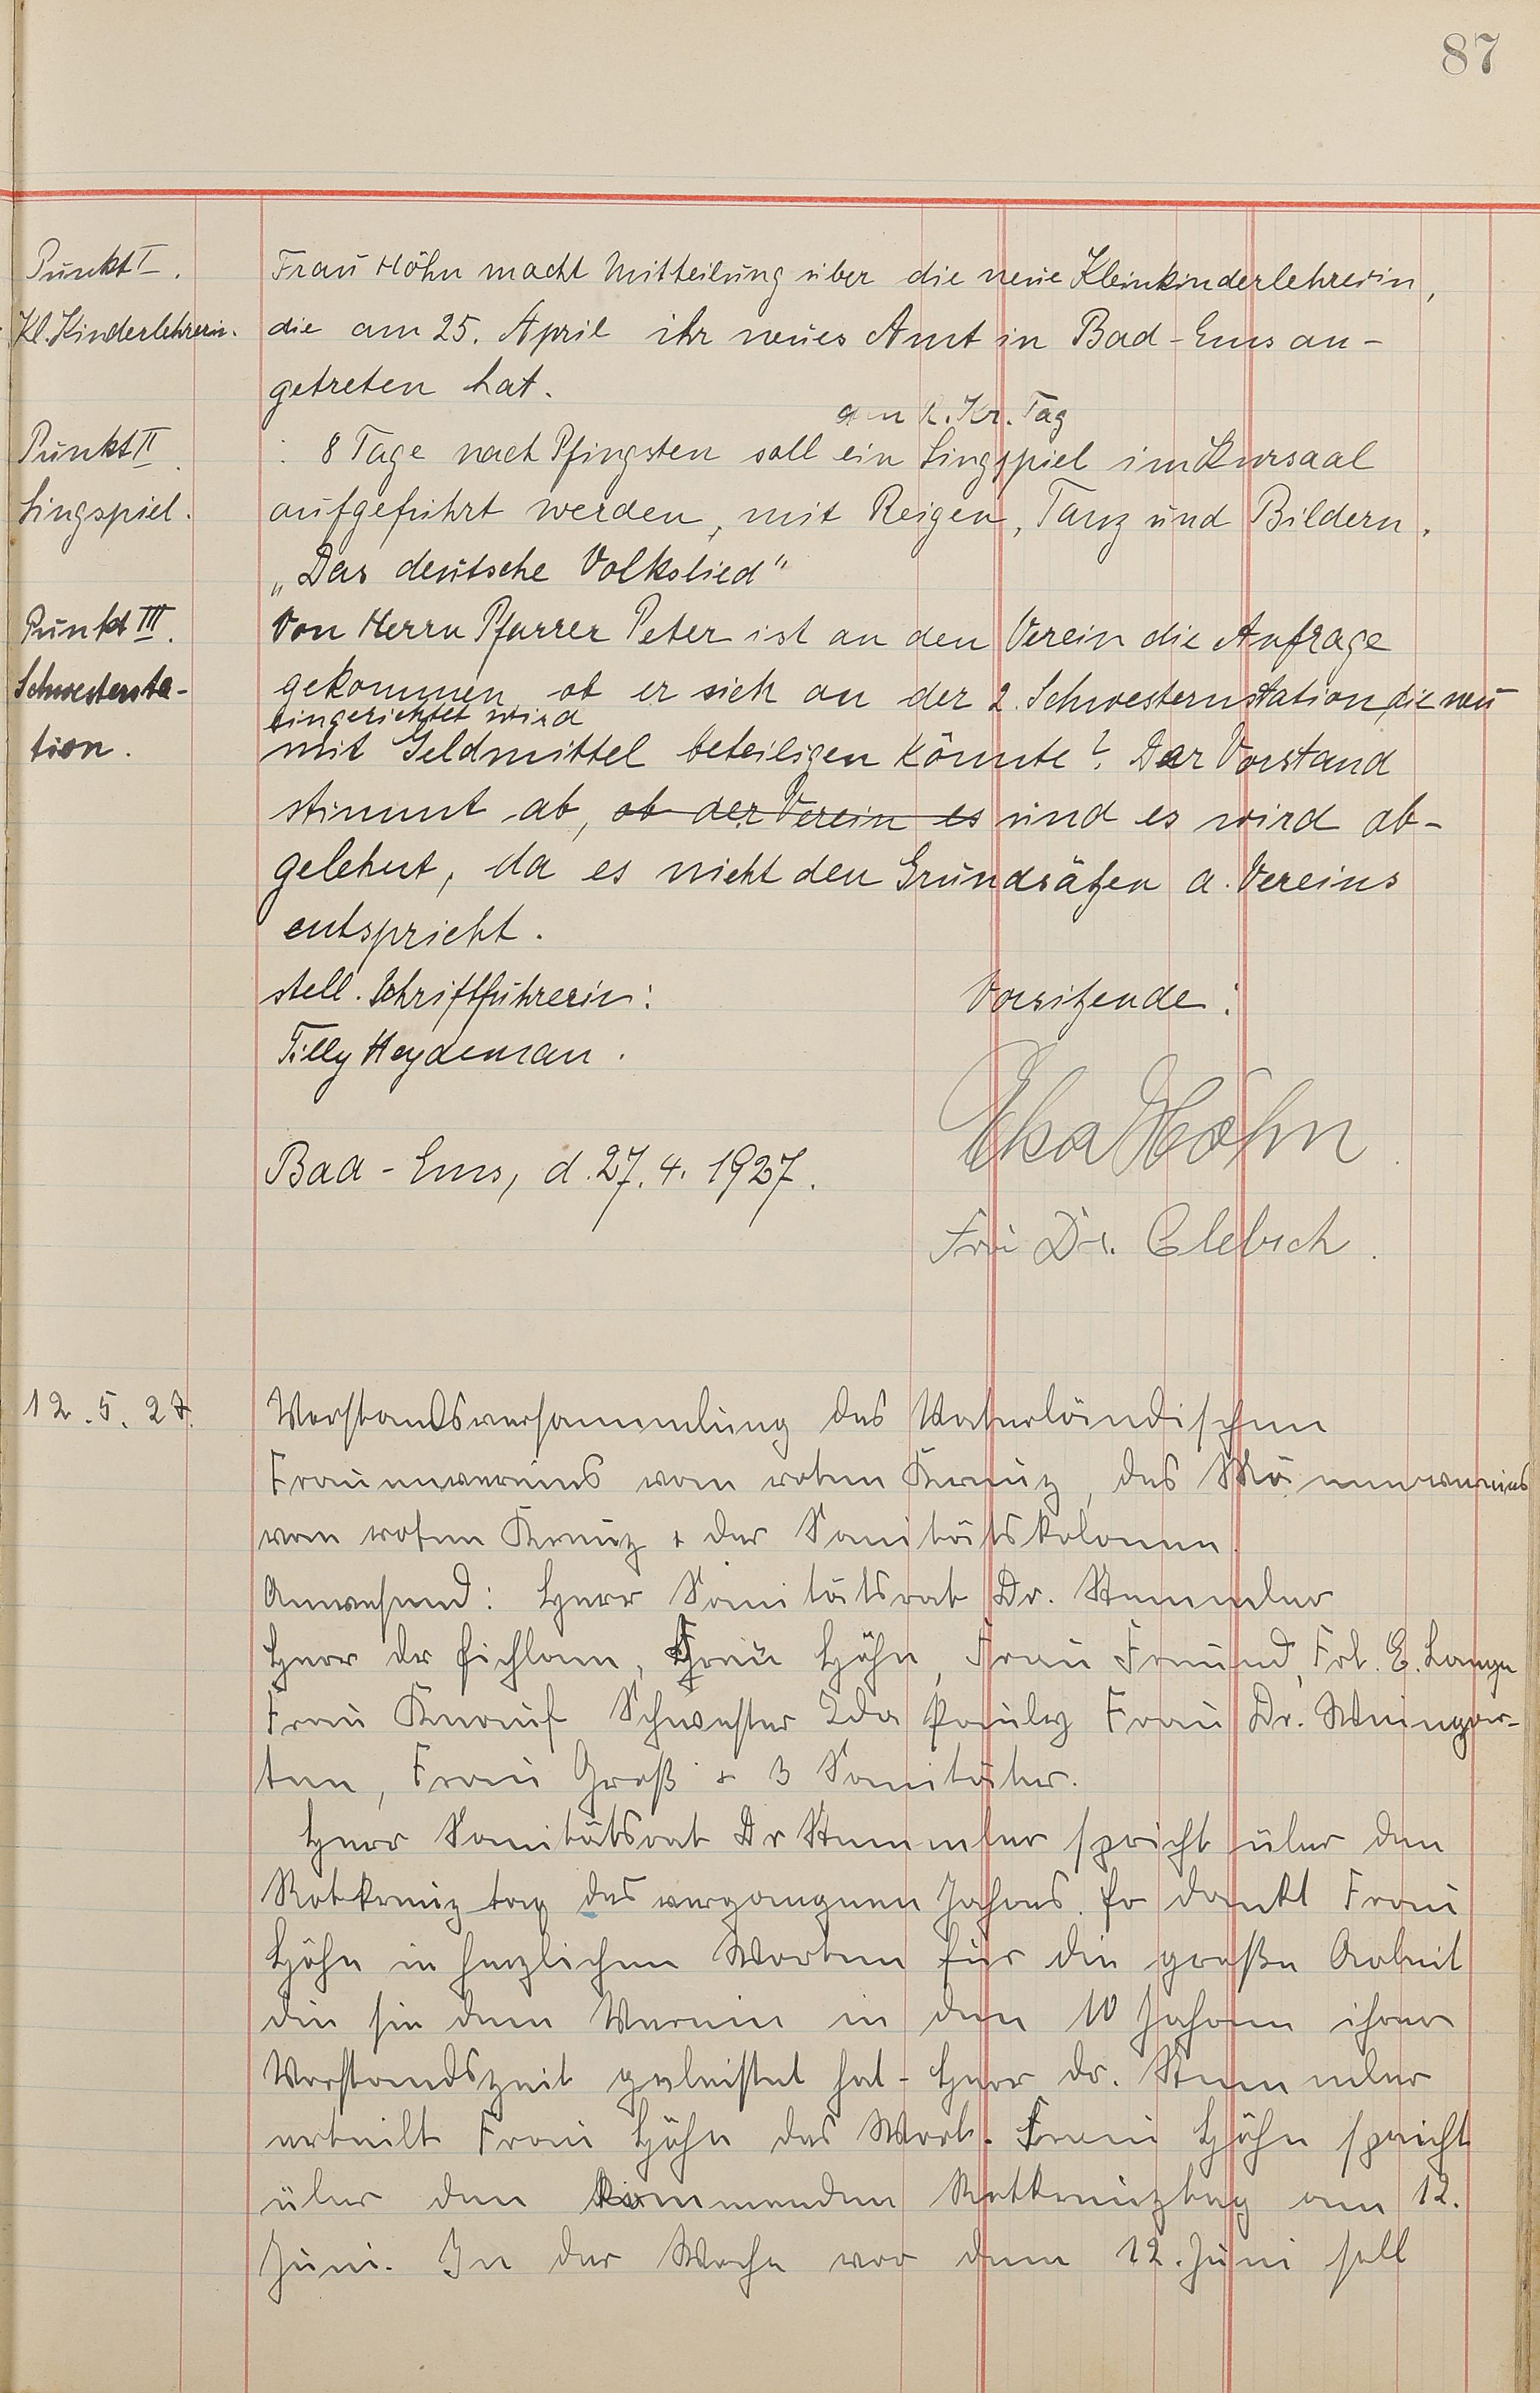 87
Punkt I.
Kl. Kinderlehrerin.
Frau Höhn macht Mitteilung über die neue Kleinkinderlehrerin,
die am 25. April ihr neues Amt in Bad-Ems an-
getreten hat.
am R. Kr. Tag
Punkt II.
Singspiel.
8 Tage nach Pfingsten soll ein Singspiel im Kursaal
aufgeführt werden, mit Reigen, Tanz und Bildern.
„Das deutsche Volkslied“
Punkt III.
Schwesternsta-
tion.
Von Herrn Pfarrer Peter ist an den Verein die Anfrage
gekommen, ob er sich an der 2. Schwesternstation, die neu
eingerichtet wird
mit Geldmittel beteiligen könnte? Der Vorstand
stimmt ab, ob der Verein es und es wird ab-
gelehnt, da es nicht den Grundsätzen d. Vereins
entspricht.
stell. Schriftführerin: Vorsitzende:
Tilly Heydeman.
Elsa Höhn
Bad-Ems, d. 27. 4. 1927.
Frau Dr. Clebsch.
12. 5. 27.
Vorstandsversammlung des Vaterländischen
Frauenvereins vom roten Kreuz, des Männervereins
vom roten Kreuz + der Sanitätskolonne.
Anwesend: Herr Sanitätsrat Dr. Stemmler
Herr Dr Eichlam, Frau Höhn, Frau Freund, Frl. E. Lange
Frau Knauf Schwester Ida Pauly Frau Dr. Weingar-
ten, Frau Groß + 3 Sanitäter.
Herr Sanitätsrat Dr Stemmler spricht über den
Rotkreuztag des vergangnen Jahres. Er dankt Frau
Höhn in herzlichen Worten für die große Arbeit
die sie dem Verein in den 10 Jahren ihrer
Vorstandszeit geleistet hat - Herr Dr. Stemmler
erteilt Frau Höhn das Wort. Frau Höhn spricht
über den kommenden Rotkreuztag am 12.
Juni. In der Woche vor dem 12. Juni soll